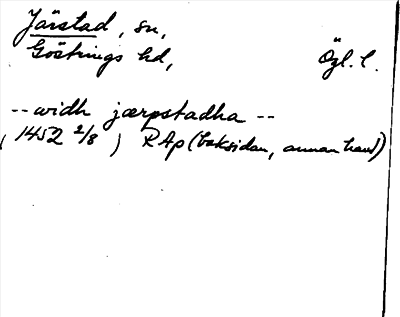 Järstad, sn,
Göstrings hd, Ögl. l.
-- widh jærpstadha --
( 1452 2/8 ) RAp (baksidan, annan hand)